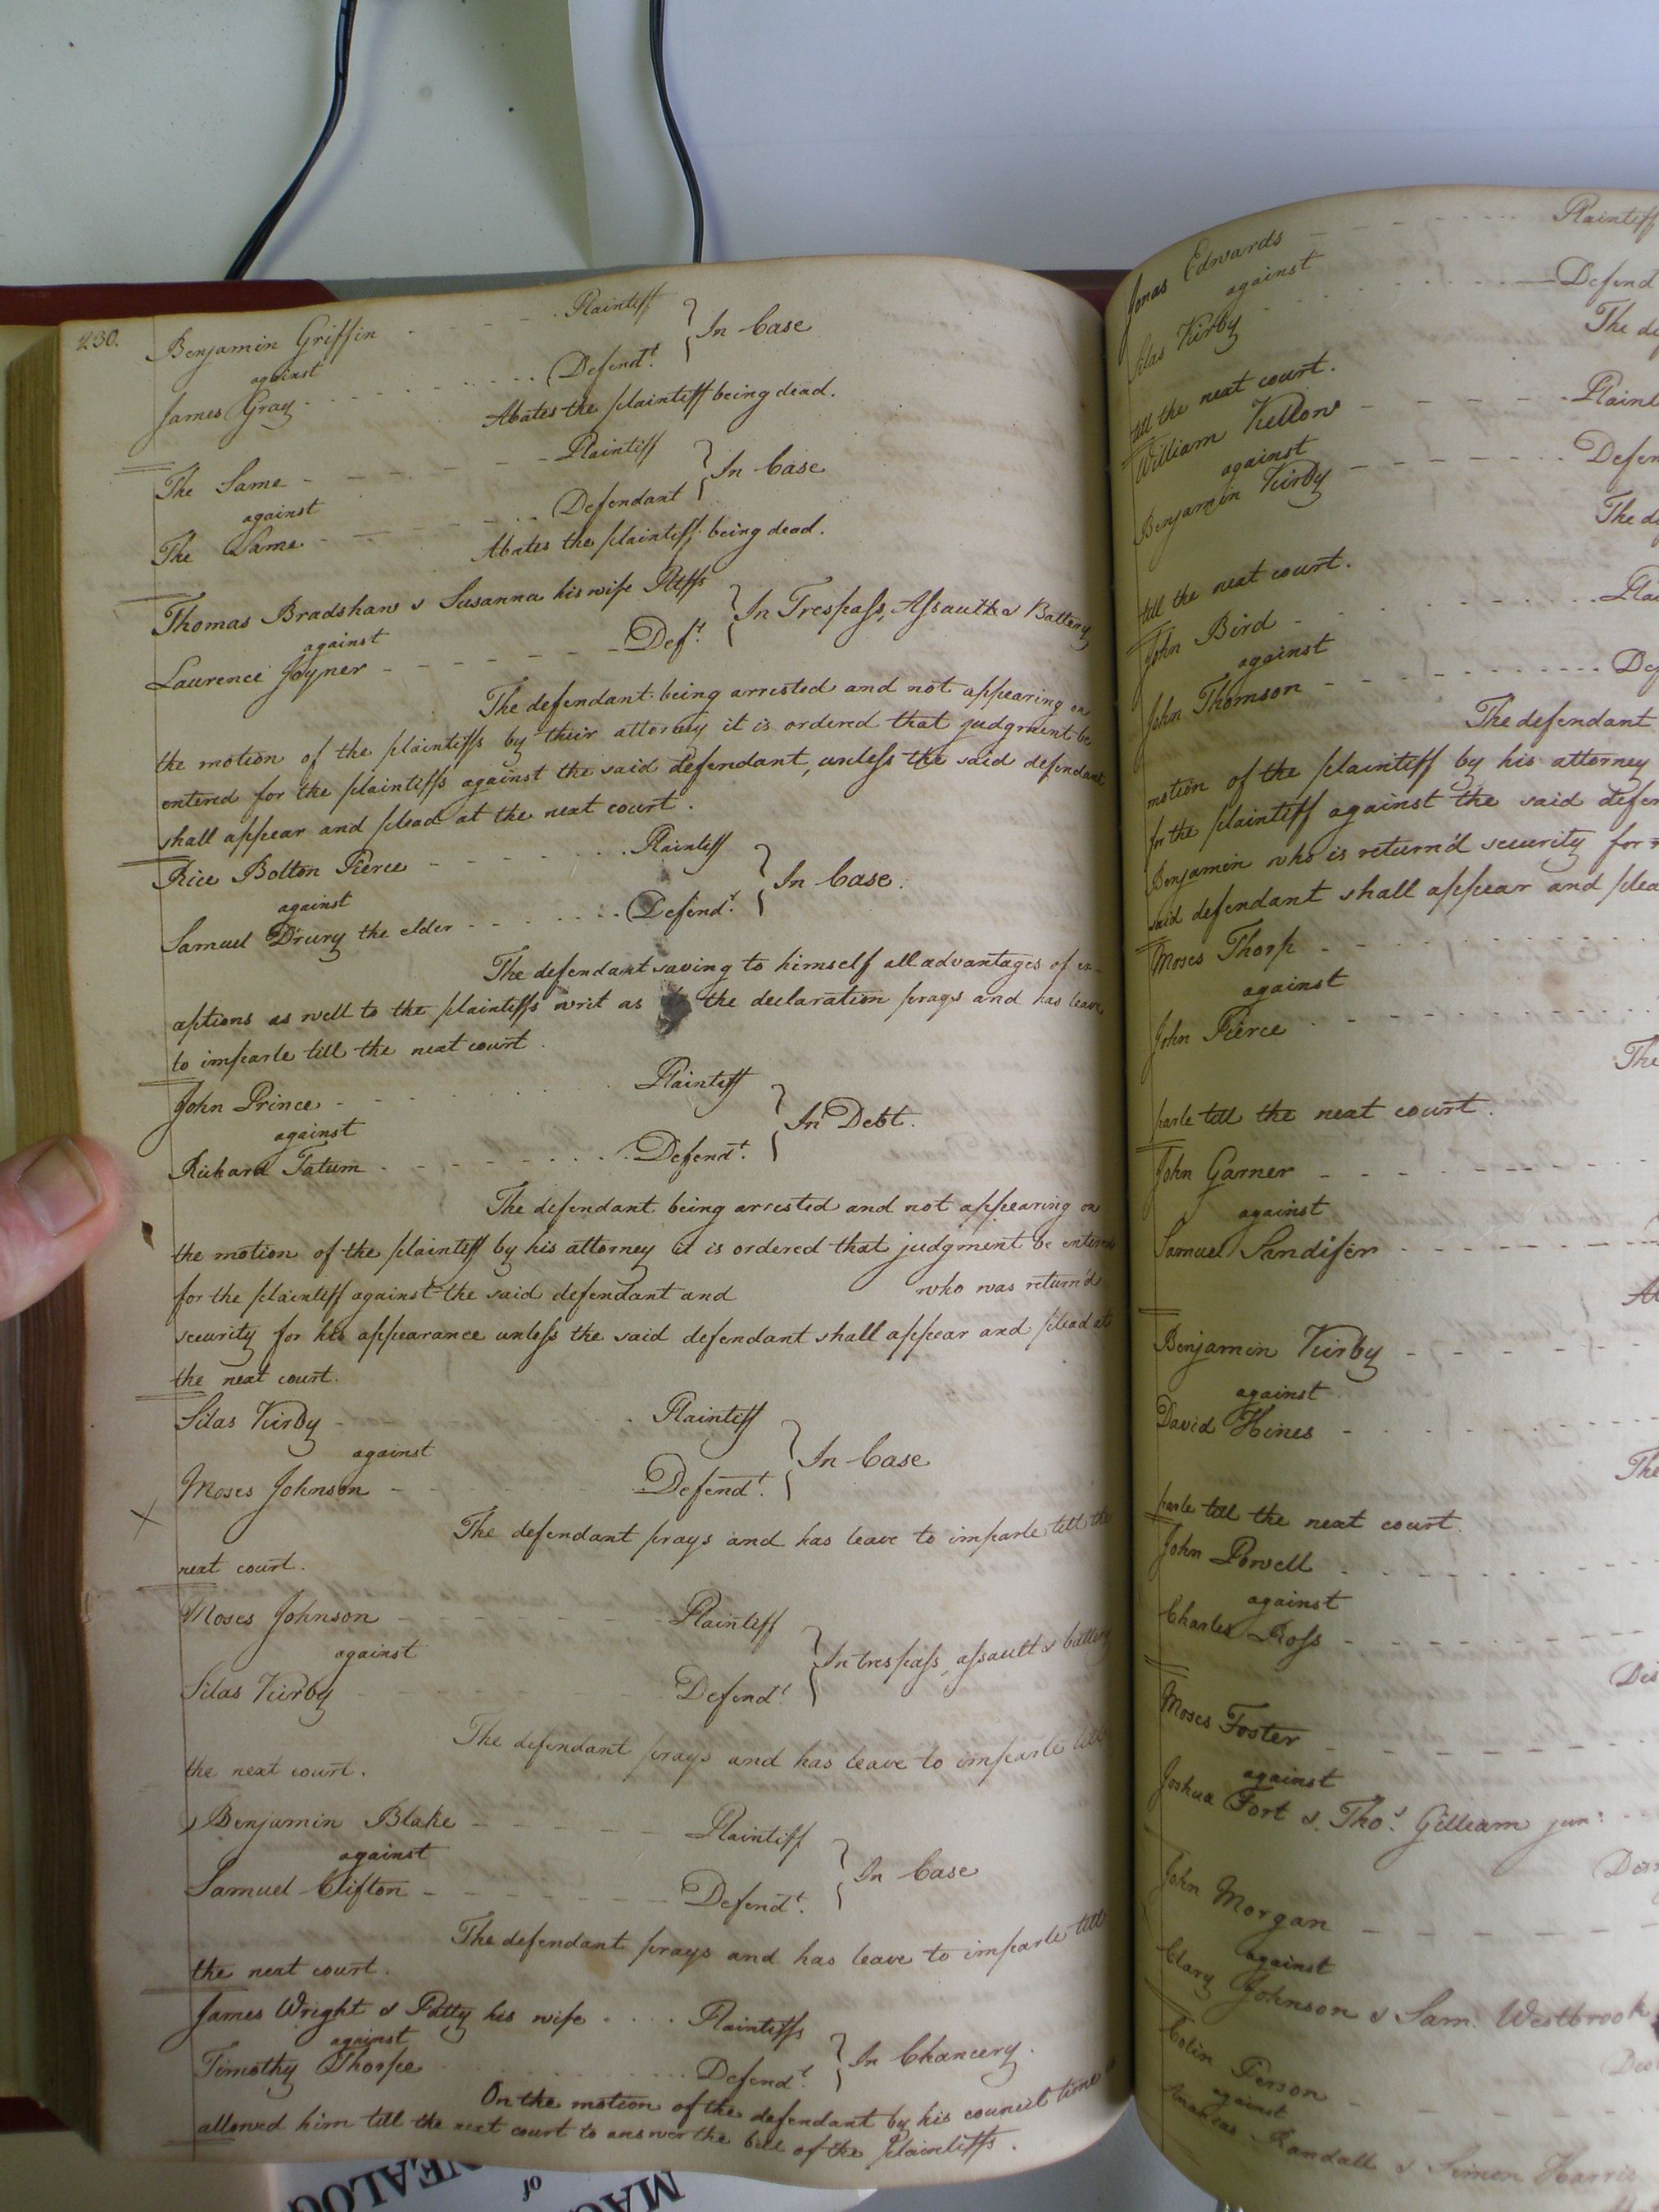 230.
Benjamin Griffin - - - - - Plaintiff } In Case
against
James Gray - - - - - Defendt.
Abates the plaintiff being dead.
The Same - - - - - Plaintiff } In Case
against
The Same - - - - - Defendant
Abates the plaintiff being dead.
Thomas Bradshaw & Susanna his wife Pltffs } In Trespass, Assault & Battery
against
Laurence Joyner - - - - - Deft.
The defendant being arrested and not appearing on
the motion of the plaintiffs by their attorney it is ordered that judgment be
entered for the plaintiffs against the said defendant, unless the said defendant
shall appear and plead at the next court.
Rice Bolton Pierce - - - - - Plaintiff } In Case.
against
Samuel Drury the elder - - - - - Defendt.
The defendant saving to himself all advantages of ex-
ceptions as well to the plaintiffs writ as the declaration prays and has leave
to imparle till the next court.
John Prince - - - - - Plaintiff } In Debt.
against
Richard Tatum - - - - - Defendt.
The defendant being arrested and not appearing on
the motion of the plaintiff by his attorney it is ordered that judgment be entered
for the plaintiff against the said defendant and who was return'd
security for his appearance unless the said defendant shall appear and plead at
the next court.
Silas Kirby - Plaintiff } In Case
against
Moses Johnson - - - Defendt.
The defendant prays and has leave to imparle till the
next court.
Moses Johnson - - - - - Plaintiff } In trespass, assault & battery
against
Silas Kirby - - - - - Defendt.
The defendant prays and has leave to imparle till
the next court.
Benjamin Blake - - - - - Plaintiff } In Case
against
Samuel Clifton - - - - - Defendt.
The defendant prays and has leave to imparle till
the next court.
James Wright & Patty his wife . . . . Plaintiffs } In Chancery.
against
Timothy Thorpe . . . . . Defendt.
On the motion of the defendant by his council time is
allowed him till the next court to answer the bill of the Plaintiffs.
Jonas Edwards - - - - - Plaintiff
against
Silas Kirby - - - - - Defend
The de
till the next court.
William Kellow - - - - - Plaint
against
Benjamin Kirby - - - - - Defen
The de
till the next court.
John Bird - - - - - Plai
against
John Thomson - - - - - De
The defendant
motion of the plaintiff by his attorney
for the plaintiff against the said defen
Benjamin who is return'd security for
said defendant shall appear and plea
Moses Thorp - - - - -
against
John Pierce - - - - -
The
parle till the next court.
John Garner - - - - -
against
Samuel Sandifer - - - - -
Benjamin Kirby - - - - -
against
David Hines - - - - -
The
parle till the next court.
John Powell - - - - -
against
Charles Ross - - - - -
Dis
Moses Foster - - - - -
against
Joshua Fort & Thos. Gilliam jun:
John Morgan - - - - -
against
Clary Johnson & Sam. Westbrook
Dis
Colin Person -
against
Randall & Simon Harris
NEALOG
of
MAG